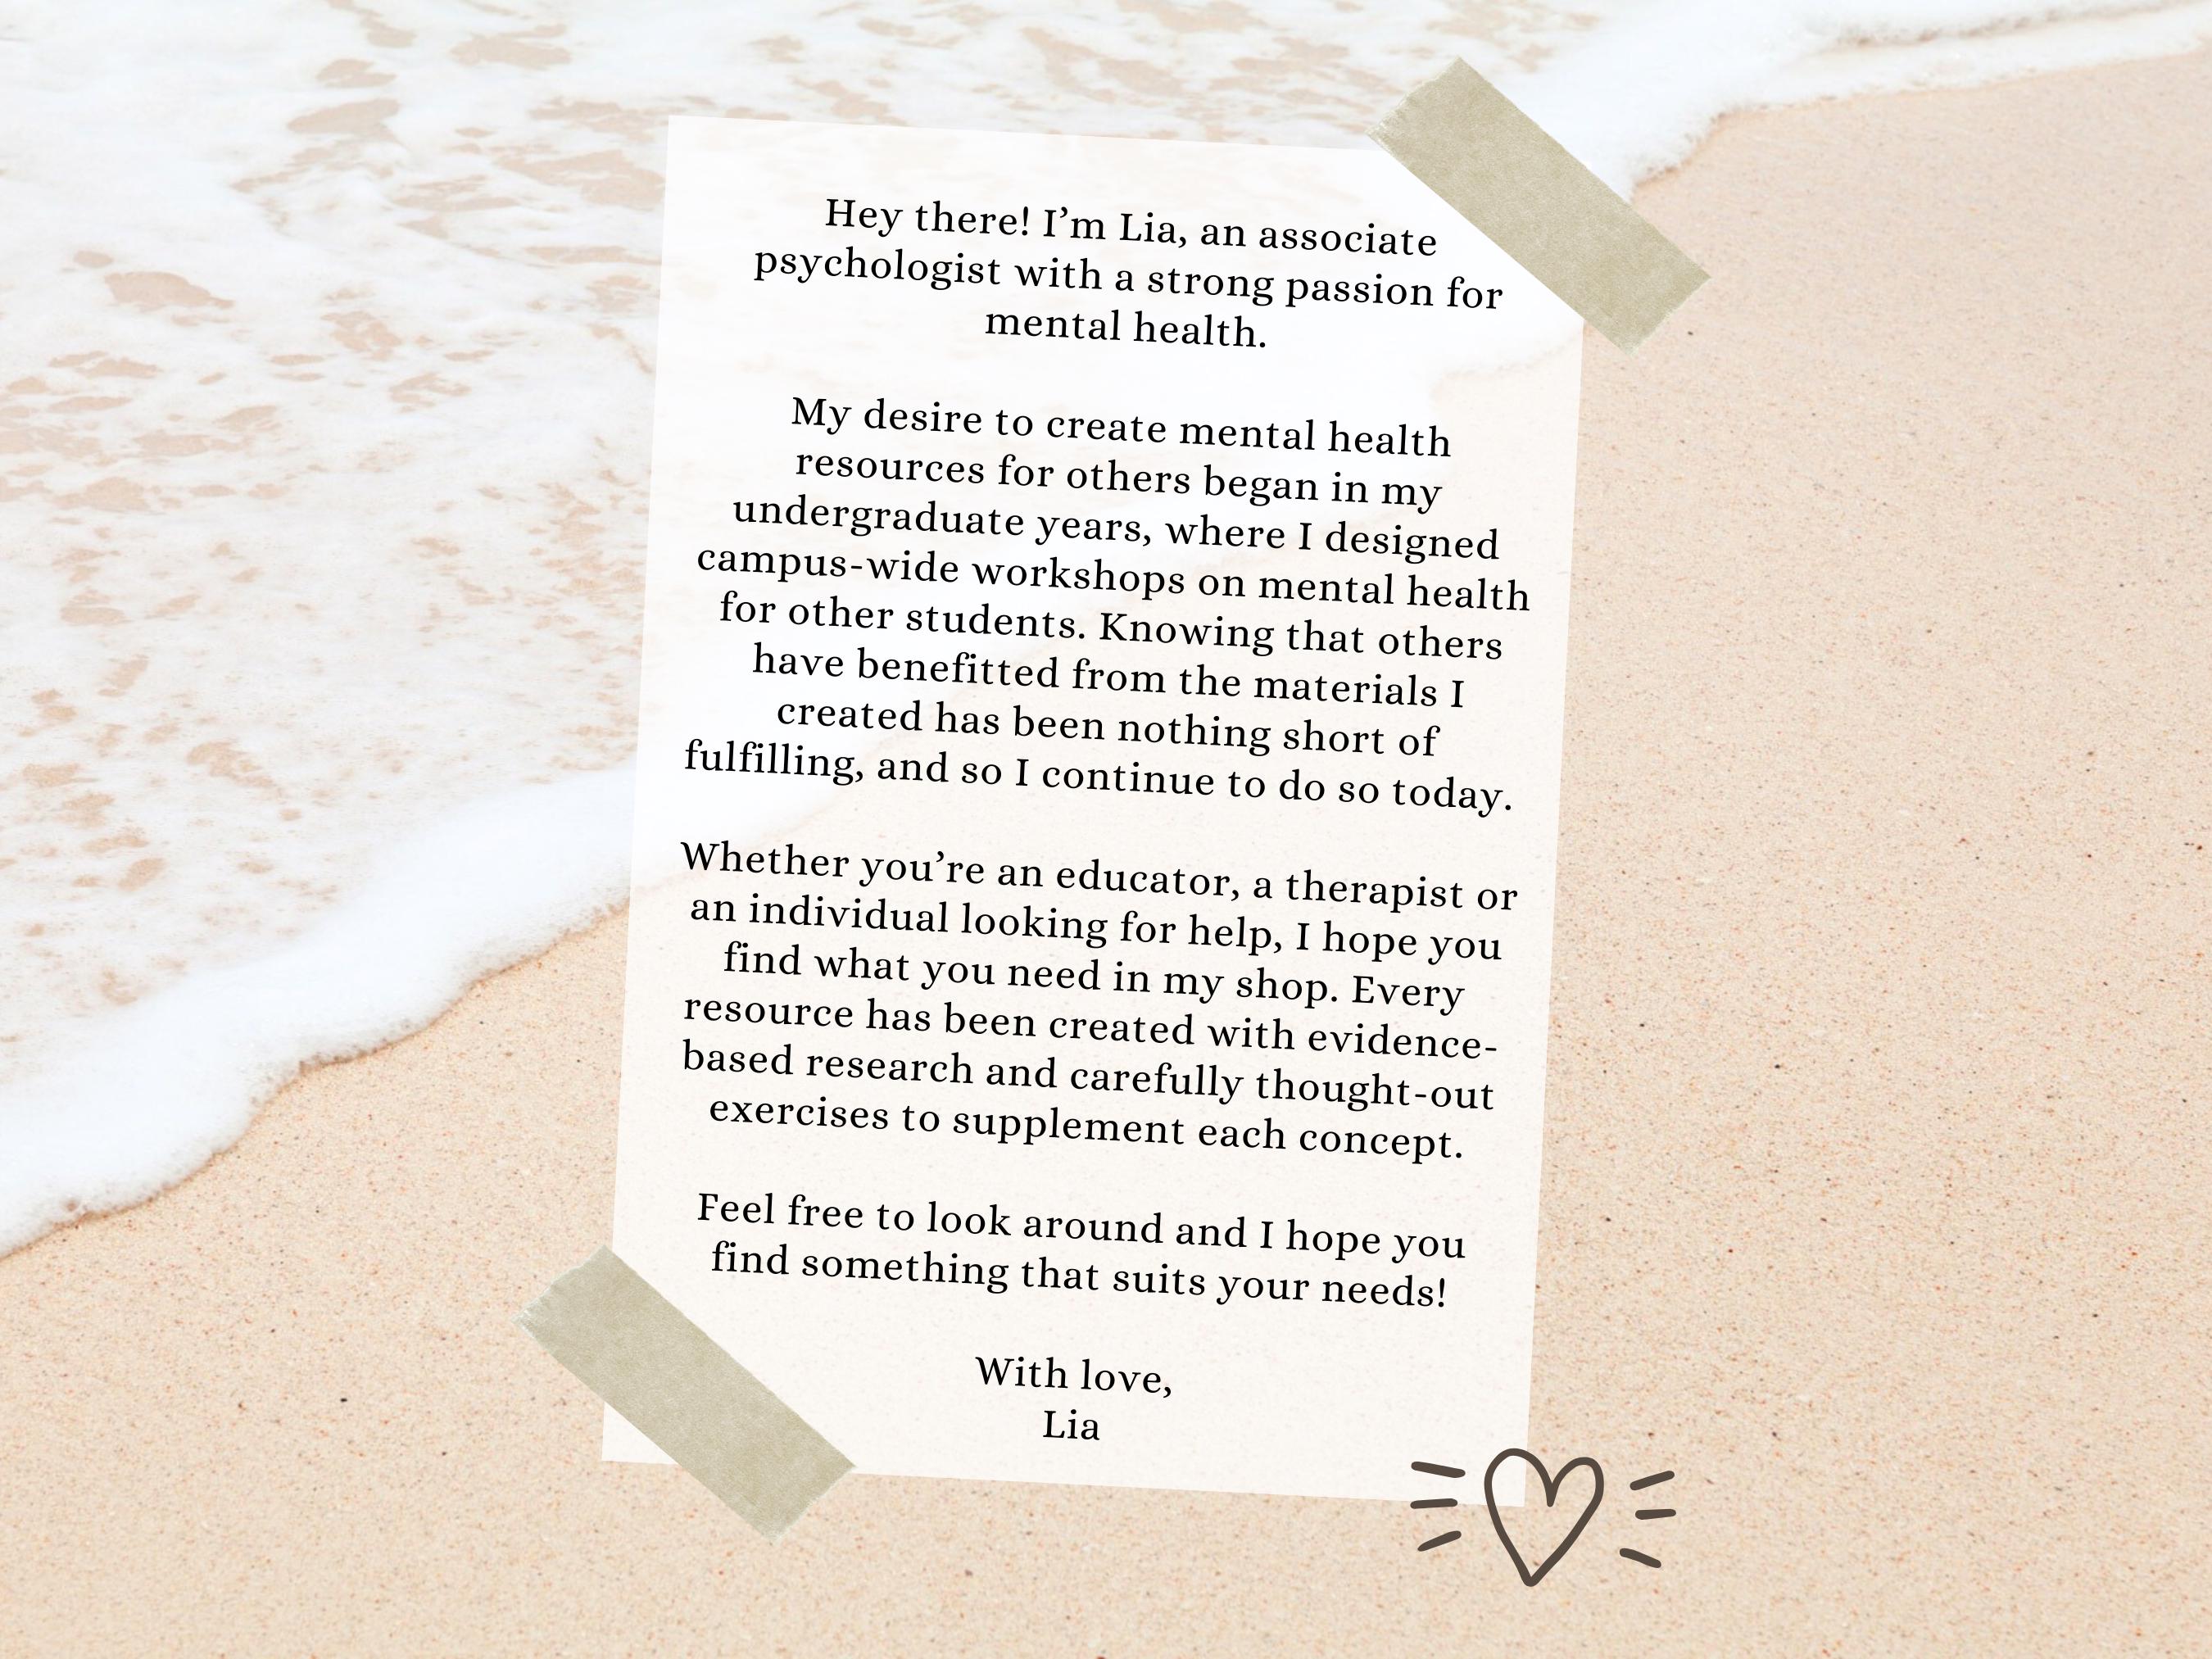 Hey there! I’m Lia, an associate
psychologist with a strong passion for
mental health.
My desire to create mental health
resources for others began in my
undergraduate years, where I designed
campus-wide workshops on mental health
for other students. Knowing that others
have benefitted from the materials I
created has been nothing short of
fulfilling, and so I continue to do so today.
Whether you’re an educator, a therapist or
an individual looking for help, I hope you
find what you need in my shop. Every
resource has been created with evidence-
based research and carefully thought-out
exercises to supplement each concept.
Feel free to look around and I hope you
find something that suits your needs!
With love,
Lia